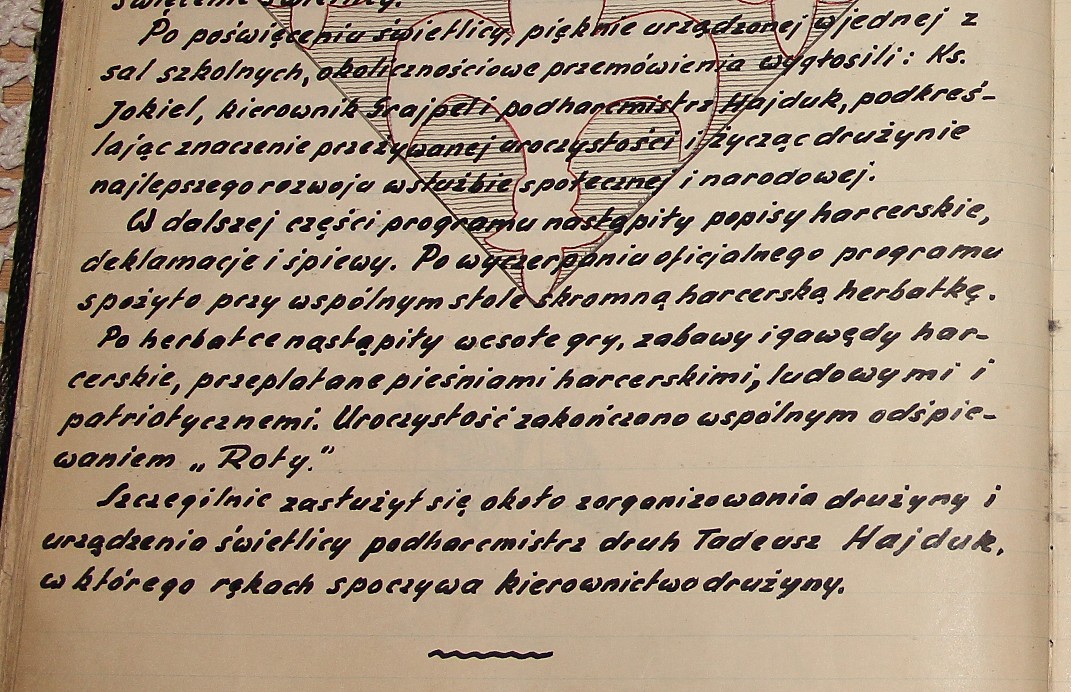 święcenie świetlicy.
Po poświęceniu świetlicy, pięknie urządzonej w jednej z
sal szkolnych, okolicznościowe przemówienia wygłosili: Ks.
Jokiel, kierownik Grajpel i podharcmistrz Hajduk, podkreś-
lając znaczenie przeżywanej uroczystości i życząc drużynie
najlepszego rozwoju w służbie społecznej i narodowej.
W dalszej części programu nastąpiły popisy harcerskie,
deklamacje i śpiewy. Po wyczerpaniu oficjalnego programu
spożyto przy wspólnym stole skromną harcerską herbatkę.
Po herbatce nąstąpiły wesołe gry, zabawy i gawędy har-
cerskie, przeplatane pieśniami harcerskimi, ludowymi i
patriotycznemi. Uroczystość zakończono wspólnym odśpie-
waniem „Roty."
Szczególnie zasłużył się około zorganizowania drużyny i
urządzenia świetlicy podharcmistrz druh Tadeusz Hajduk,
w którego rękach spoczywa kierownictwo drużyny.